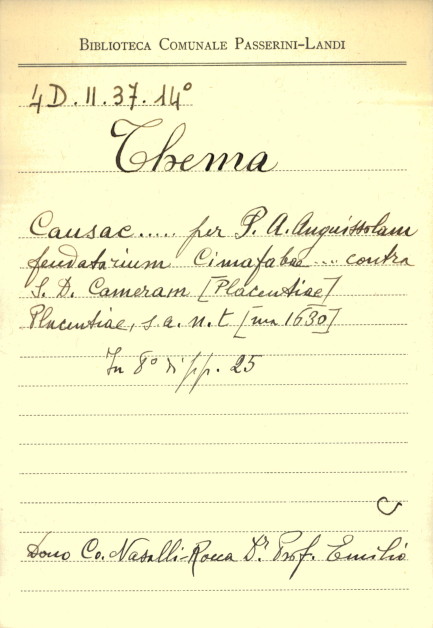 BIBLIOTECA COMUNALE PASSERINI-LANDI
4D.II.37.14°
Thema
Causae..... per P. A. Anguissolam
feudatarium Cimafabae.... contra
S. D. Cameram [Placentiae]
Placentiae, s.a.n.t [ma 1630]
In 8° di pp. 25
Dono Co. Nasalli-Rocca Dr. Prof. Emilio